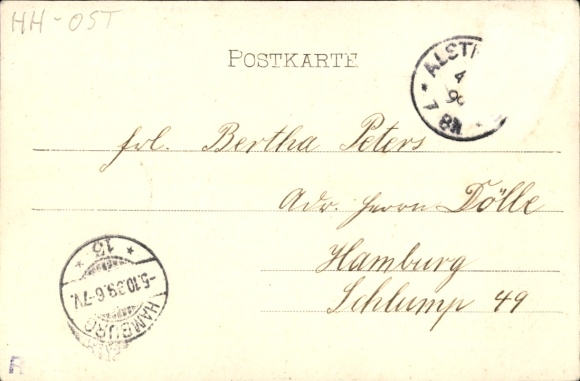 HH-OST
POSTKARTE
ALST
4
7 8N
Frl. Bertha Peters
Adr. Herrn Dölle
Hamburg
Schlump 49
* 13 *
-5.10.99.6-7V.
HAMBURG